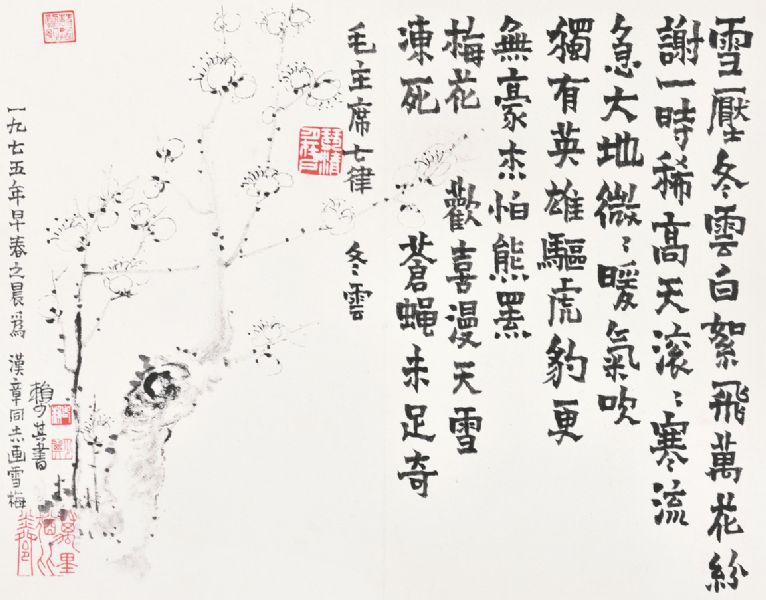 雪壓冬雲白絮飛萬花紛
謝一時稀高天滾〻寒流
急大地微〻暖氣吹
獨有英雄驅虎豹更
無豪杰怕熊羆
梅花 歡喜漫天雪
凍死 蒼蠅未足奇
毛主席七律 冬雲
一九七五年早春之晨為 漢章同志画雪梅
賴少其書